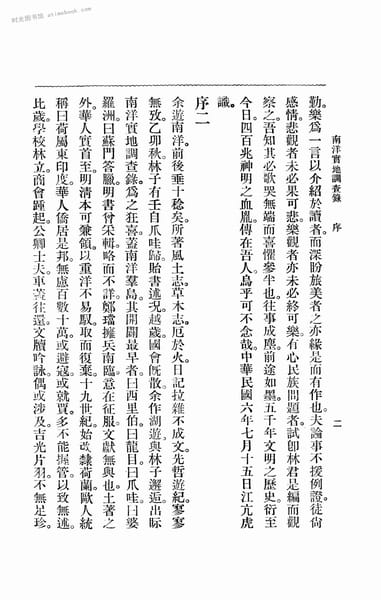 时光图书馆 - atimebook.com
南洋實地調查錄 序 二
勤樂爲一言以介紹於讀者而深盼旅美者之亦緣是而有作也夫論事不援例證徒尙
感情悲觀者未必果可悲樂觀者亦未必終可樂有心民族問題者試卽林君是編而觀
察之吾知其必歌哭無端而喜懼參半也往事成塵前途如墨五千年文明之歷史衍至
今日四百兆神明之血胤傳在吾人烏乎可不念哉中華民國六年七月十五日江亢虎
識。
序二
余遊南洋前後垂十稔矣所著風土志草木志厄於火日記拉雜不成文先哲遊紀寥寥
無攷乙卯秋林子有壬自爪哇歸貽書述況越歲國會旣散余作湖遊與林子邂逅出眎
南洋實地調查錄爲之狂喜蓋南洋羣島其開闢最早者曰西里伯曰龍目曰爪哇曰婆
羅洲曰蘇門答臘明書曾采輯略而不詳鄭擁兵南臨意在征服文獻無與也土著之
外華人實首至明淸本可兼領以重洋不易馭取而復棄十九世紀始改隸荷蘭歐人統
稱曰荷屬東印度華人僑居是邦無慮百數十萬或避寇或就賈多不能握管以致無述
比歲學校林立商會踵起公卿士夫車蓋往還文牘吟詠偶或涉及吉光片羽不無足珍